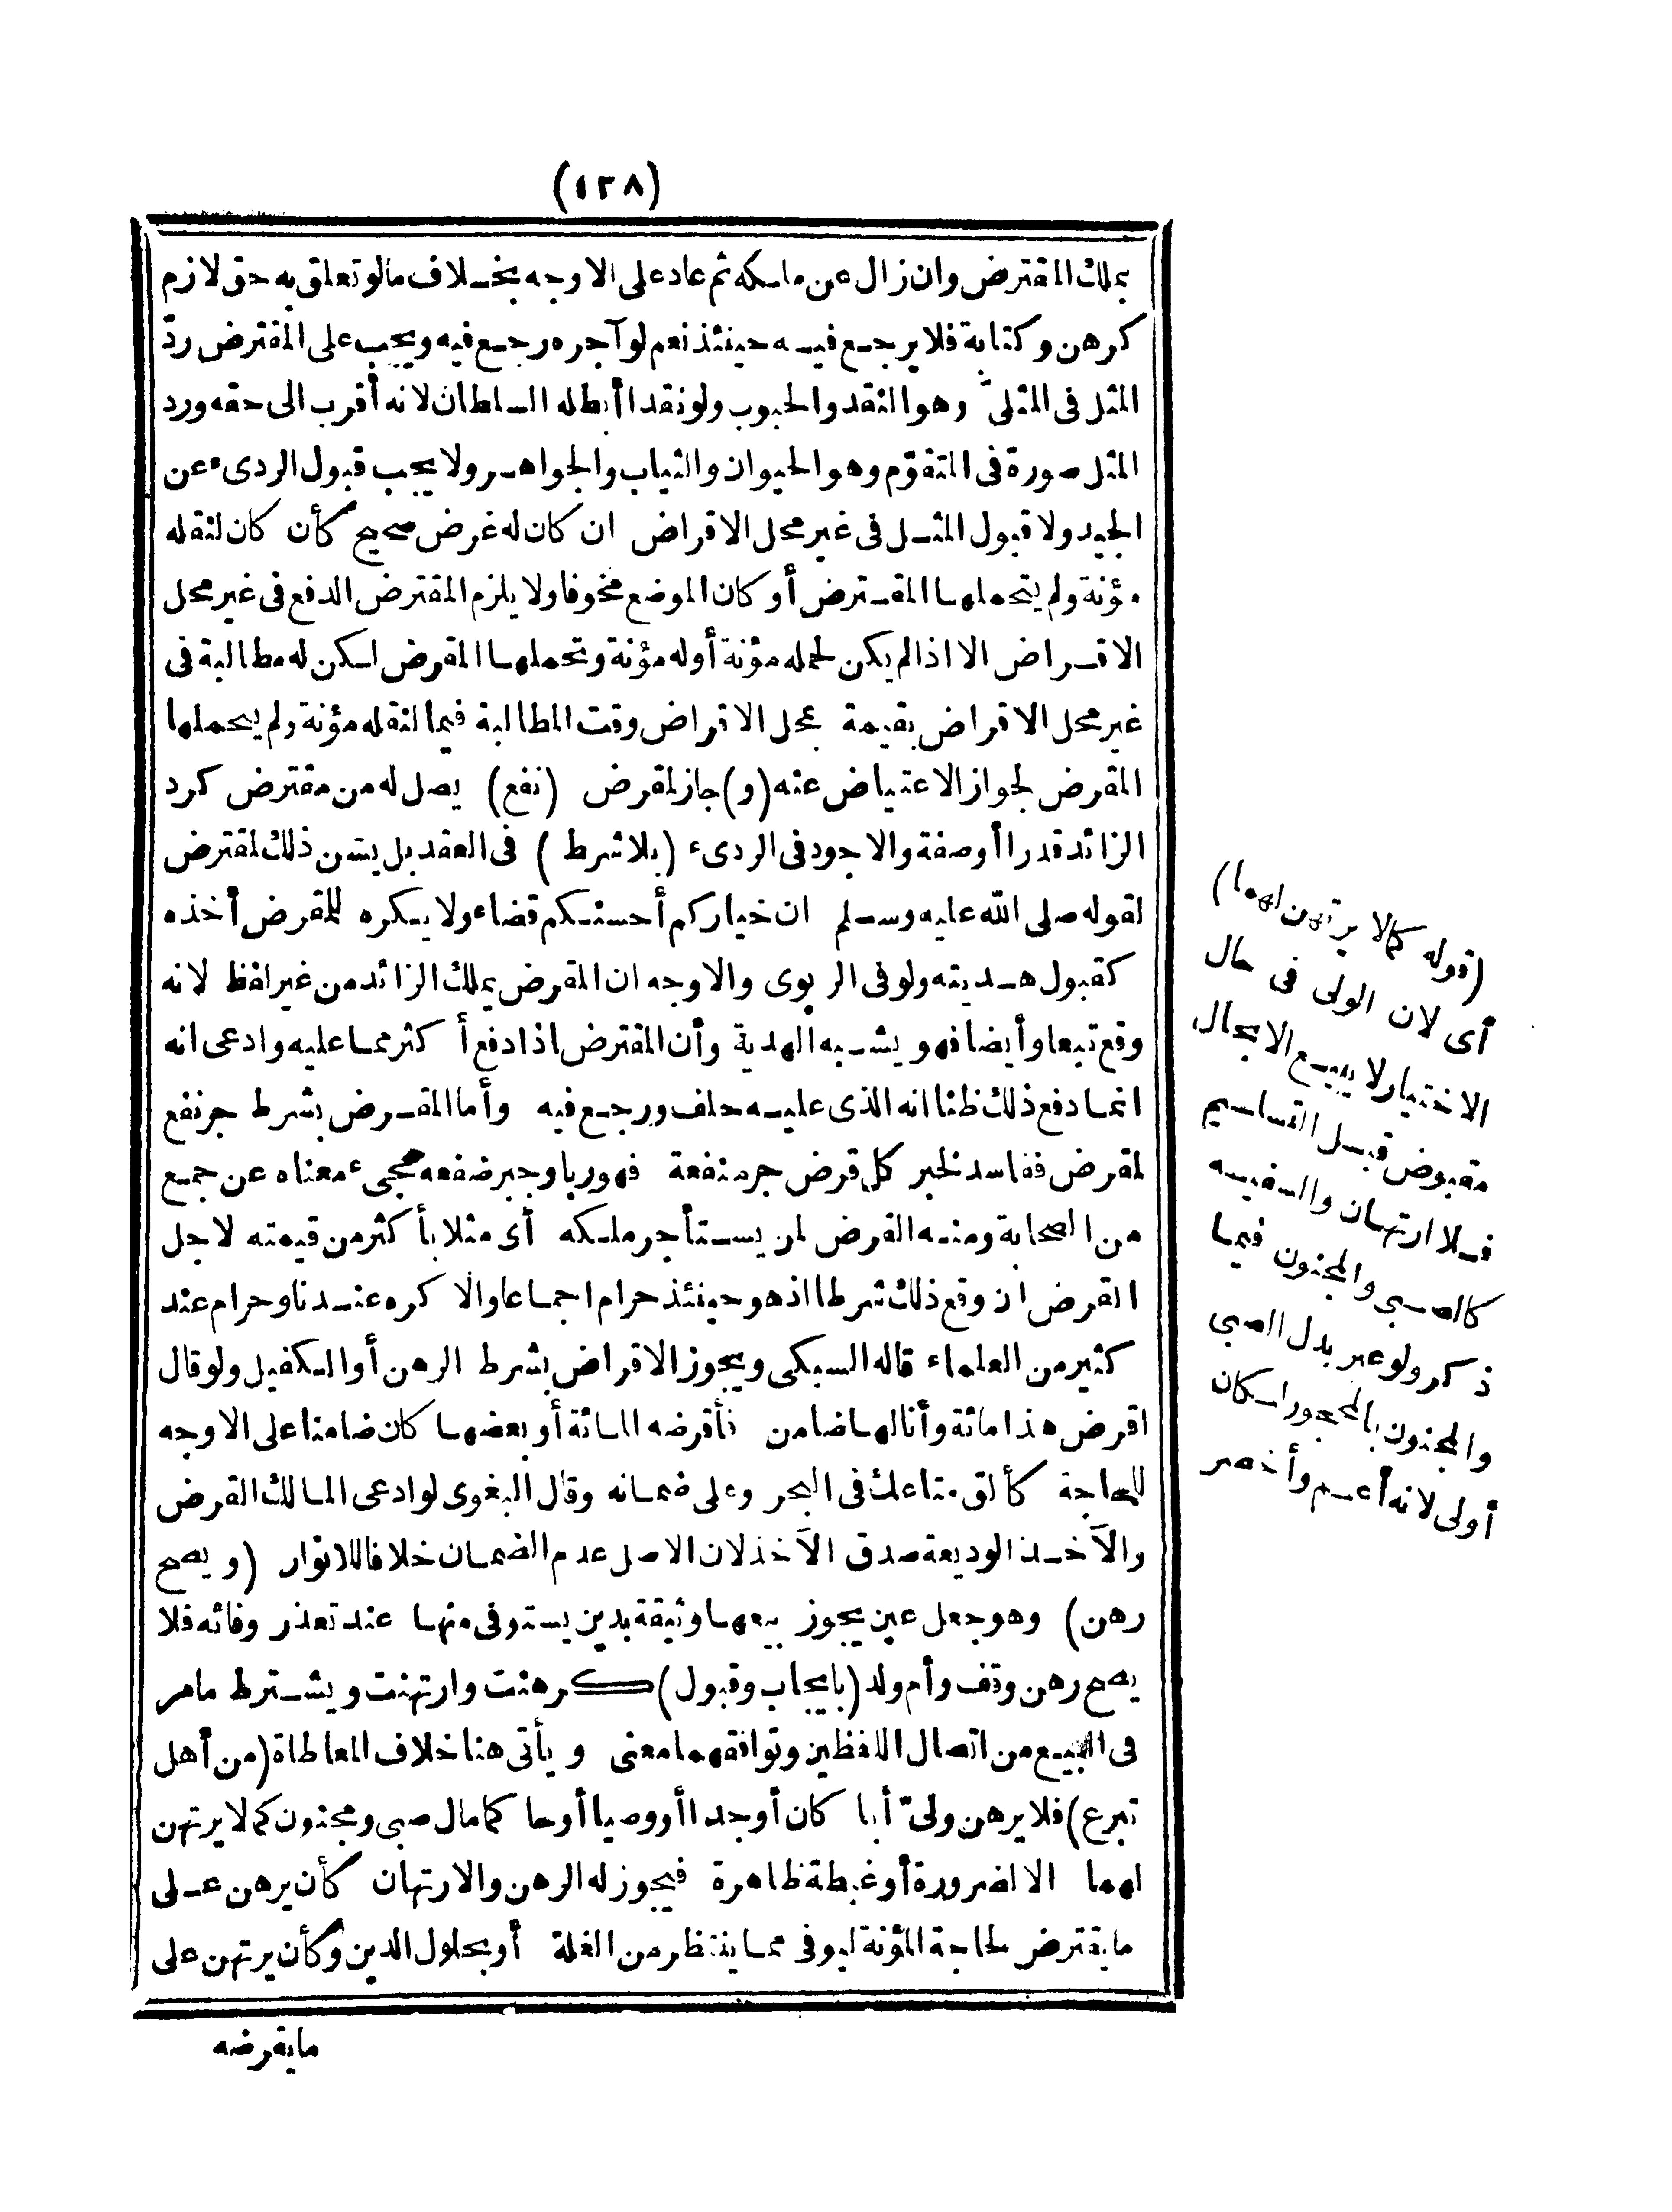 (١٣٨)
بملك المقترض وان زال عن ملكه ثم عاد على الاوجه بخلاف مالو تعلق به حق لازم
كرهن وكتابة فلا يرجع فيه حينئذ نعم لو آجره رجع فيه ويجب على المقترض ردّ
المثل فى المثلىّ وهو النقد والحبوب ولو نقدا أبطله السلطان لانه أقرب الى حقه ورد
المثل صورة فى المتقوّم وهو الحيوان والثياب والجواهر ولا يجب قبول الردىء عن
الجيد ولا قبول المثل فى غير محل الاقراض ان كان له غرض صحيح كأن كان لنقله
مؤنة ولم يتحملها المقترض أو كان الموضع مخوفا ولا يلزم المقترض الدفع فى غير محل
الاقراض الا اذا لم يكن لحمله مؤنة أوله مؤنة وتحملها المقرض لكن له مطالبة فى
غير محل الاقراض بقيمة بمحل الاقراض وقت المطالبة فيما لنقله مؤنة ولم يتحملها
المقرض لجواز الاعتياض عنه (و) جاز لمقرض (نفع) يصل له من مقترض كرد
الزائد قدرا أو صفة والاجود فى الردىء (بلا شرط) فى العقد بل يسن ذلك لمقترض
لقوله صلى الله عليه وسلم ان خياركم أحسنكم قضاء ولا يكره للمقرض أخذه
كقبول هديته ولو فى الربوى والاوجه ان المقرض يملك الزائد من غير لفظ لانه
وقع تبعا وأيضا فهو يشبه الهدية وأن المقترض اذا دفع أكثر مما عليه وادعى انه
انما دفع ذلك ظنا انه الذى عليه حلف ورجع فيه وأما القرض بشرط جر نفع
لمقرض ففاسد لخبر كل قرض جر منفعة فهو ربا وجبر ضعفه مجىء معناه عن جمع
من الصحابة ومنه القرض لمن يستأجر ملكه أى مثلا بأكثر من قيمته لاجل
القرض ان وقع ذلك شرطا اذ هو حينئذ حرام اجماعا والا كره عندنا وحرام عند
كثير من العلماء قاله السبكى ويجوز الاقراض بشرط الرهن أو الكفيل ولو قال
اقرض هذا مائة وأنا لها ضامن فأقرضه المائة أو بعضها كان ضامنا على الاوجه
للحاجة كألق متاعك فى البحر وعلى ضمانه وقال البغوى لو ادعى المالك القرض
والآخذ الوديعة صدق الآخذ لان الاصل عدم الضمان خلافا للانوار (و يصح
رهن) وهو جعل عين يجوز بيعها وثيقة بدين يستوفى منها عند تعذر وفائه فلا
يصح رهن وقف وأم ولد (بايجاب وقبول) كرهنت وارتهنت ويشترط مامر
فى البيع من اتصال اللفظين وتوافقهما معنى ويأتى هنا خلاف المعاطاة (من أهل
تبرع) فلا يرهن ولىّ أبا كان أو جدا أو وصيا أو حاكما مال صبى ومجنون كما لا يرتهن
لهما الا لضرورة أو غبطة ظاهرة فيجوز له الرهن والارتهان كأن يرهن على
ما يقترض لحاجة المؤنة ليوفى مما ينتظر من الغلة أو بحلول الدين وكأن يرتهن على
ما يقرضه
(قوله كما لا يرتهن لهما)
أى لان الولى فى حال
الاختيار لا يبيع الا بحال
مقبوض قبل التسليم
فلا ارتهان والسفيه
كالصبى والمجنون فيما
ذكر ولو عبر بدل الصبى
والمجنون بالمحجور لكان
أولى لانه أعم وأخصر